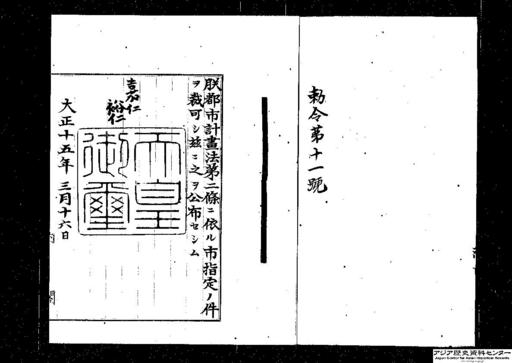 勅令第十一號
朕都市計畫法第二條ニ依ル市指定ノ件
ヲ裁可シ茲ニ之ヲ公布セシム
嘉仁
裕仁
天皇御璽
大正十五年三月十六日
内
閣
アジア歴史資料センター
Japan Center for Asian Historical Records